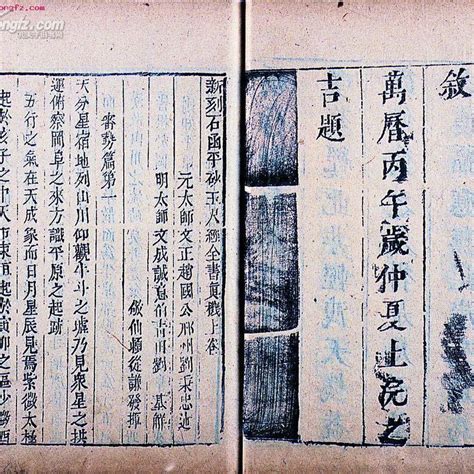 敘
萬曆丙午歲仲夏上浣之
吉題
新刻石函平砂玉尺經全書真機上卷
元太師文正趙國公邢州劉秉忠述
明太師文成誠意伯青田劉基解
仙賴從謙發揮
審勢篇第一
天分星宿地列山川仰觀牛斗之墟乃見衆星之拱
運俯察岡阜之來方識平原之起跡
五行之氣在天成象而日月星辰見焉紫微太極
起於亥子之中天市東垣起於寅卯之區少微西